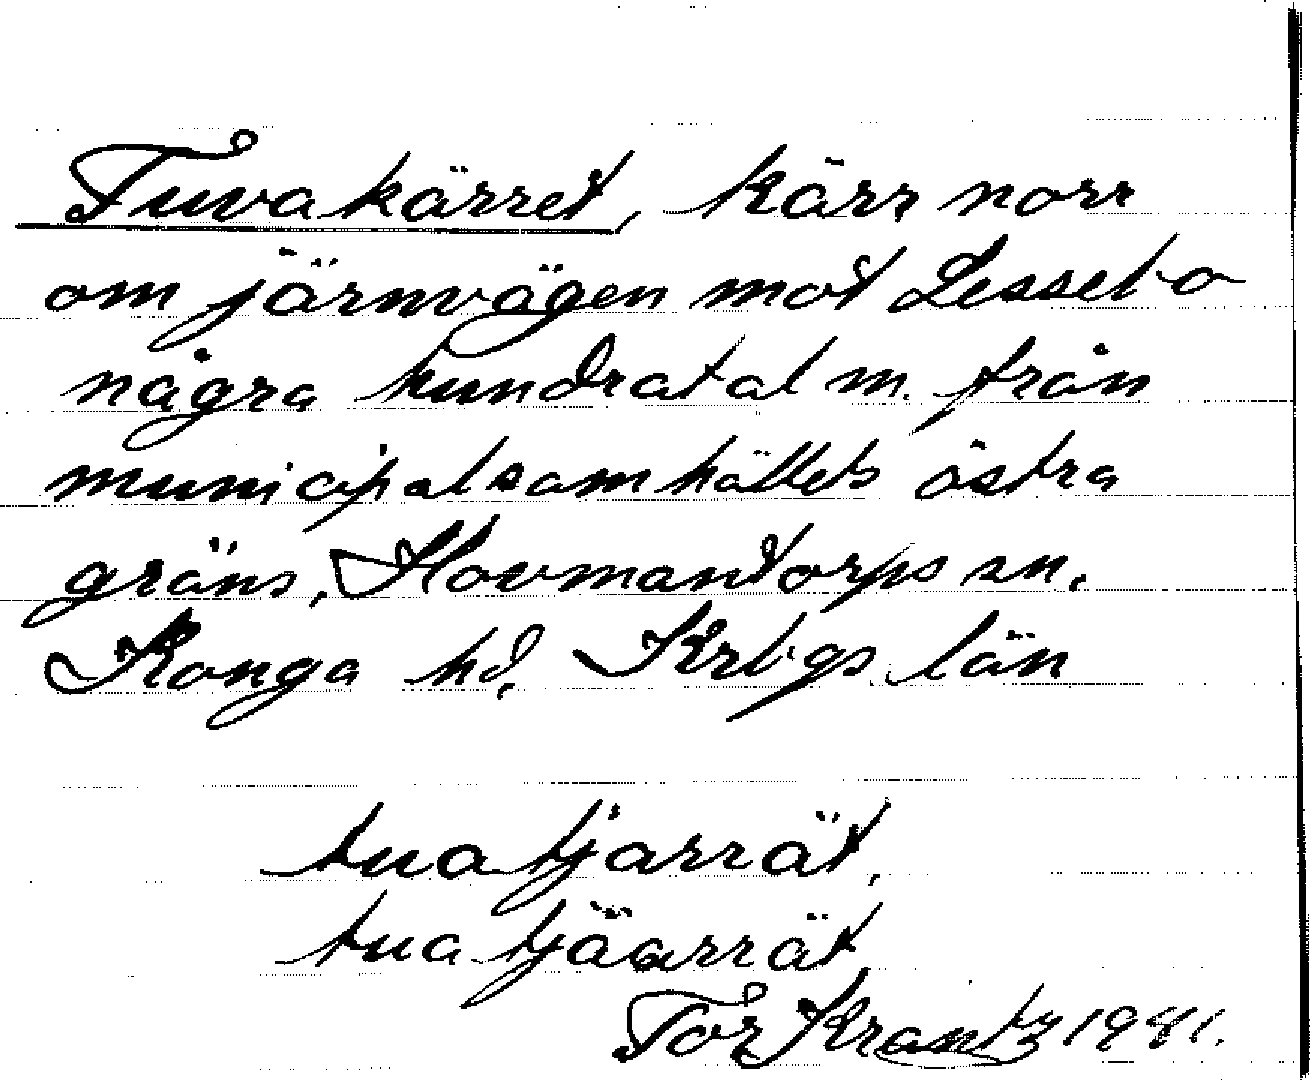 Tuvakärret, kärr norr
om järnvägen mot Lessebo
några hundratal m. från
municipalsamhällets östra
gräns, Hovmantorps sn.
Konga hd, Krbgs län
tua tjarrät,
tua tjäarrät
Tor Krantz 1981.